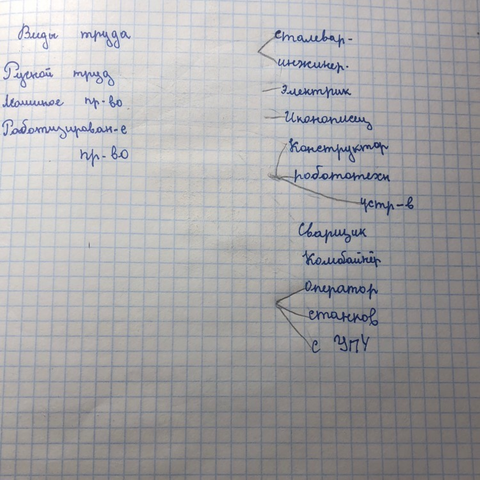 Виды труда
Ручной труд
Машиное пр-во.
Работизирован-е
пр-во
Сталевар-
инжинер.
Электрик
Иконописец
Конструктор
робототехн
устр-в
Сварщик
Комбайнёр
Оператор
станков
с УПУ